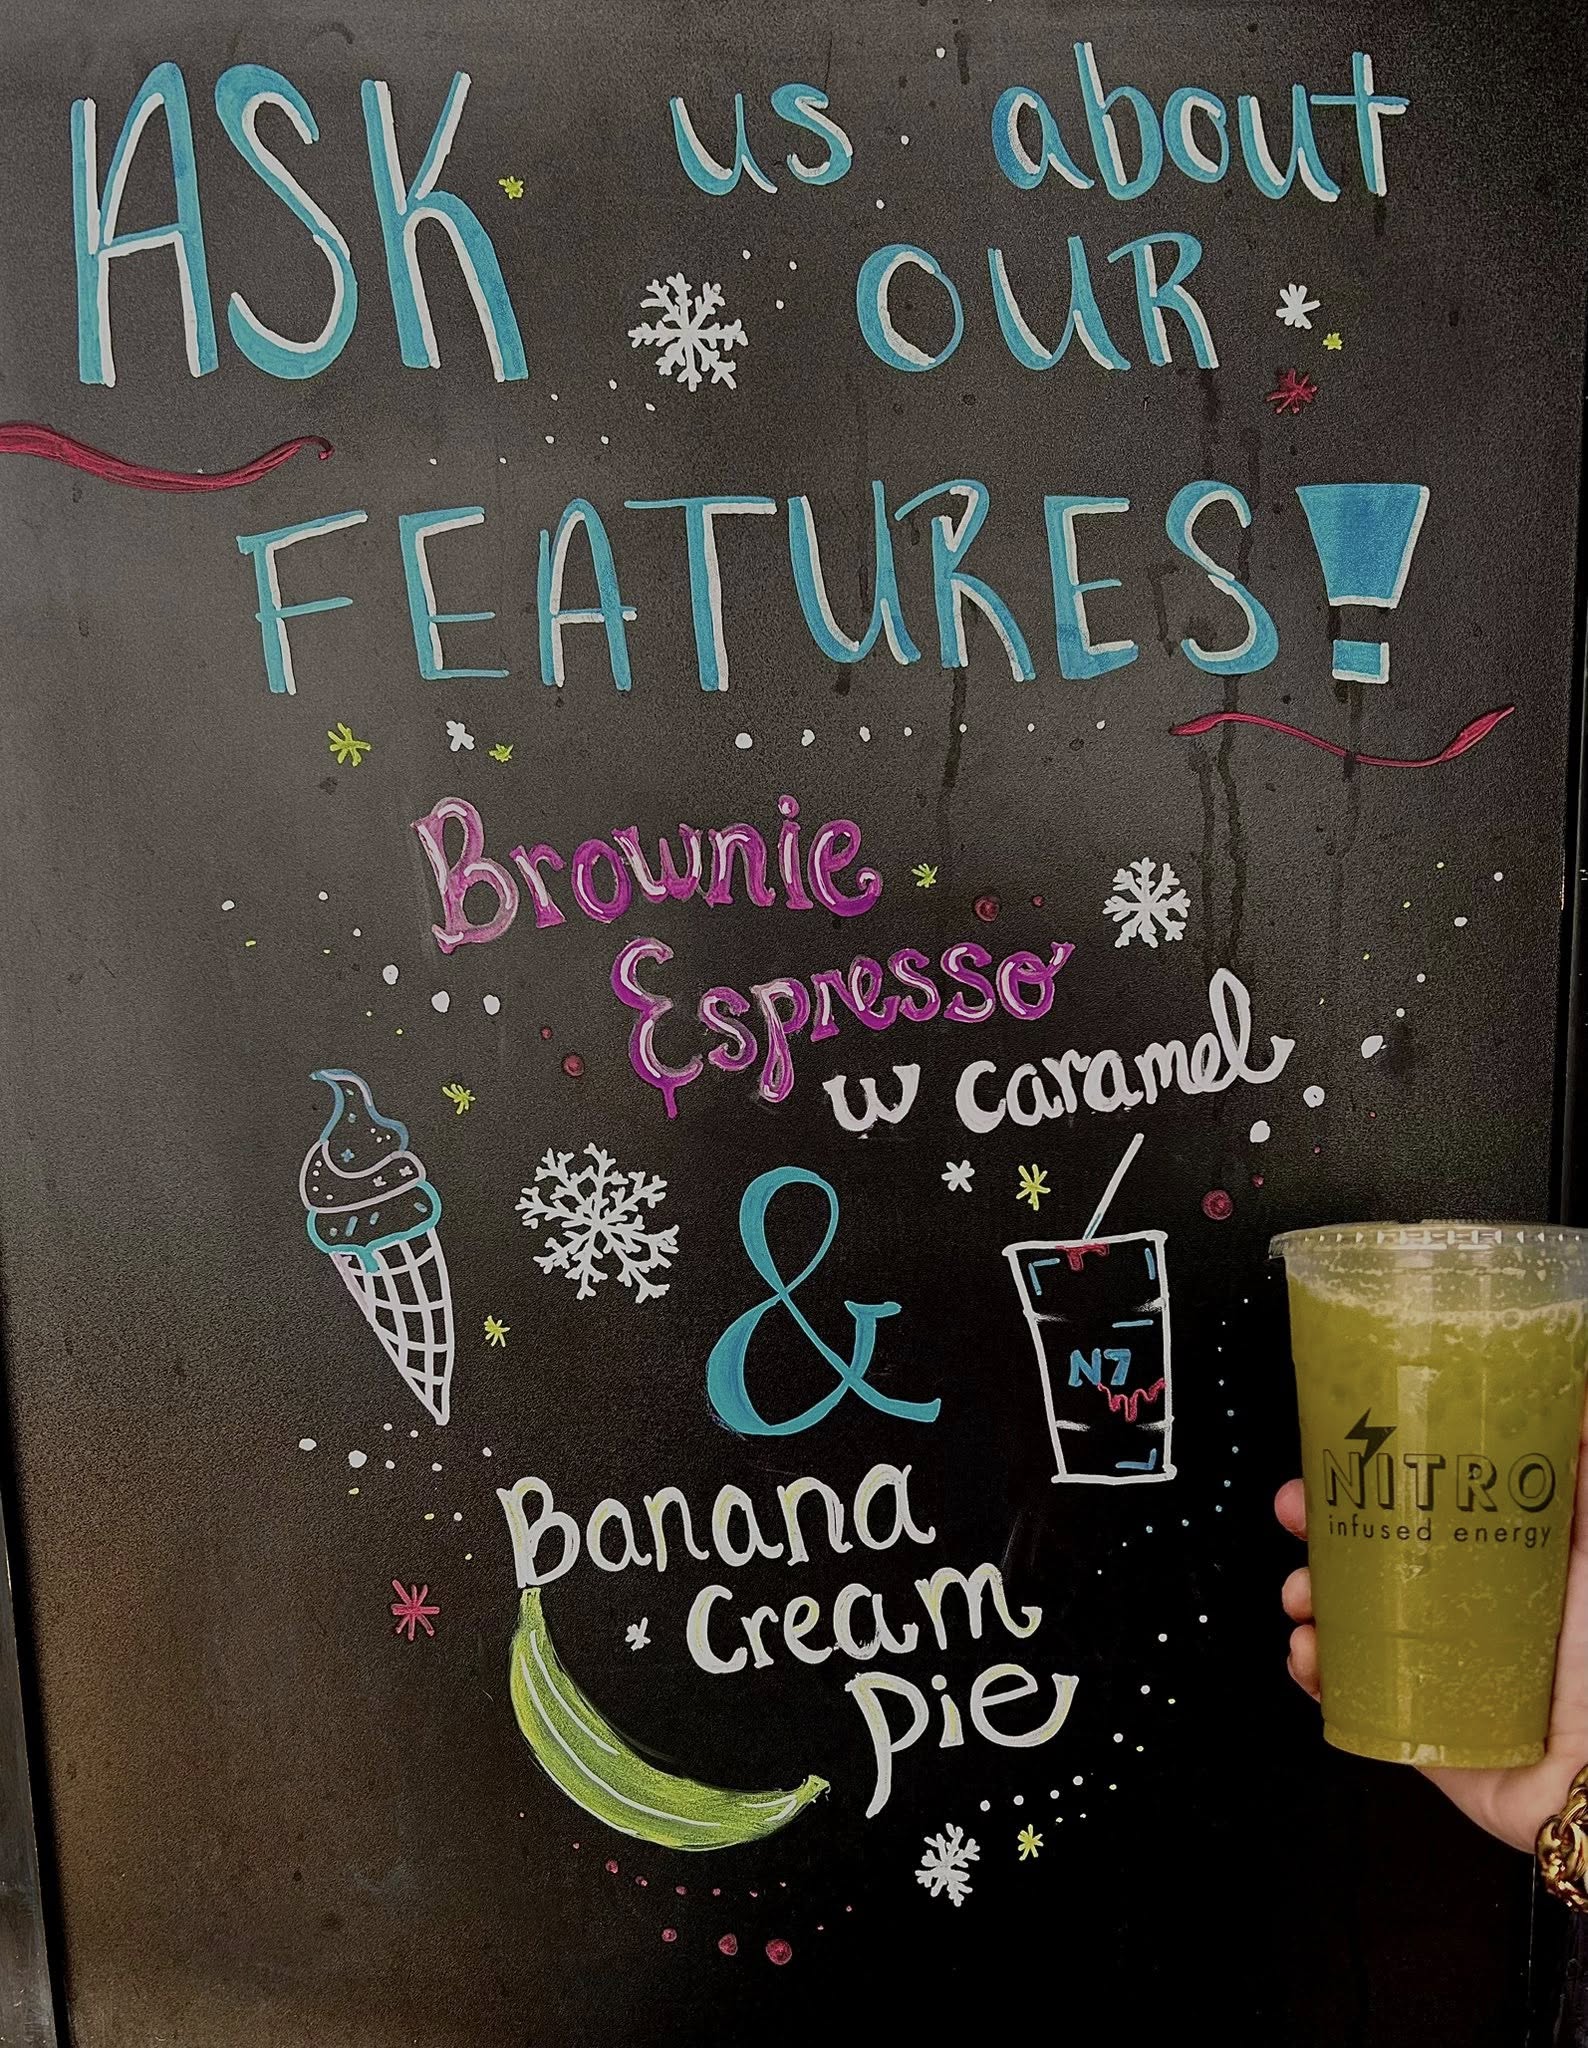 ASK us about
OUR
FEATURES!
Brownie
Espresso
w caramel
&
N7
Banana
Cream
Pie
NITRO
infused energy